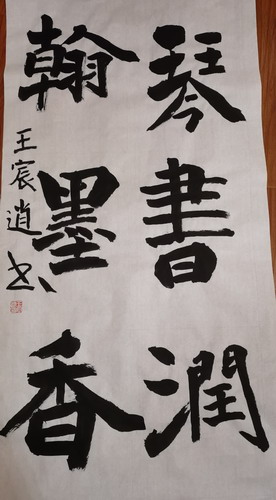 琴書潤
翰墨香
王宸逍书